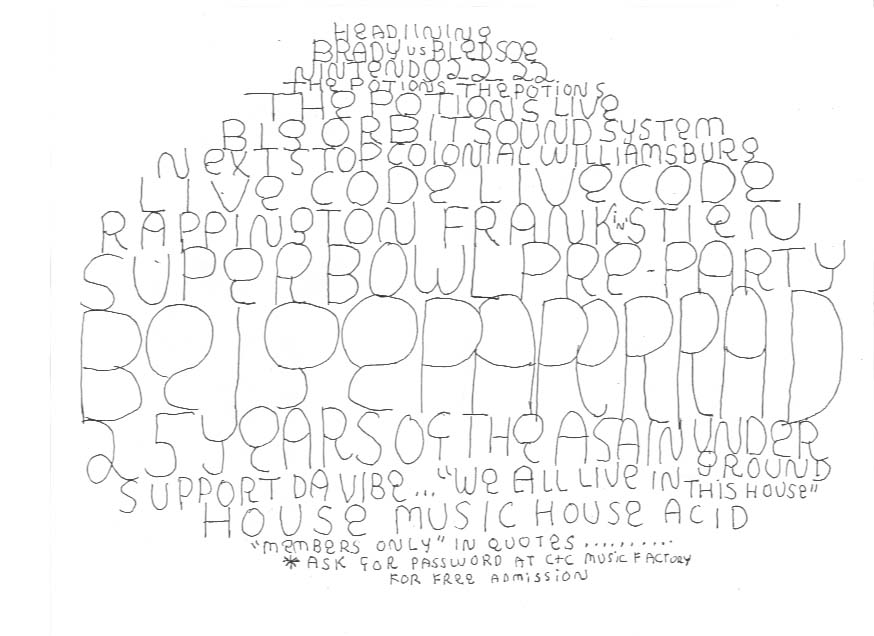 HeADlINING
BRADY US BLeDSOe
NINTeNDO 22_22
THe POTIONS THe POTIONS
THe POTIONS LIVe
BIG ORBIT SOUND SYSTem
NeXT STOP COLONIAL WILLIAMSBURG
LIVe CODe LIVe CODe
RAPPINGTON FRANK 'IN' STIeN
SUPeRBOWL PRe-PARTY
25 YeARS OF THe ASAIN UNDeR
GROUND
SUPPORT DA VIBe... "We ALL LIVe IN
THIS HOUSe"
HOUSe MUSIC HOUSe ACID
"MeMBeRS ONLY" IN QUOTeS ..........
*ASK FOR PASSWORD AT C+C MUSIC FACTORY
FOR FRee ADMISSION